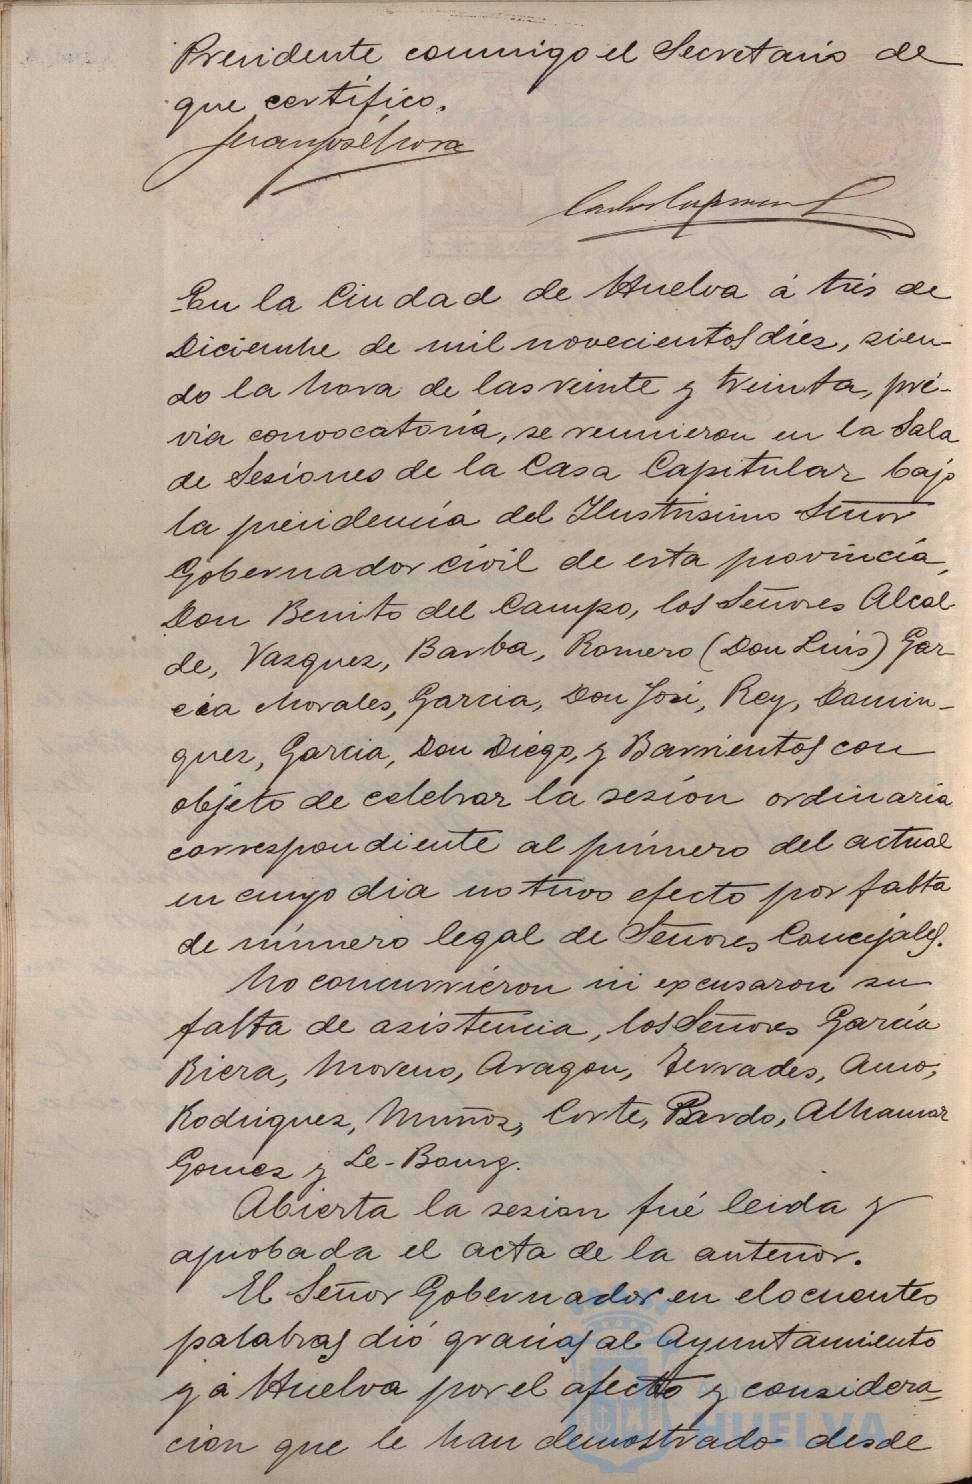 Presidente conmigo el Secretario de
que certifico.
Juan José Mora
En la Ciudad de Huelva á trés de
Diciembre de mil novecientos diez, sien-
do la hora de las veinte y treinta, pré-
via convocatoria, se reunieron en la Sala
de Sesiones de la Casa Capitular bajo
la presidencia del Ilustrisimo Señor
Gobernador civil de esta provincia,
Don Benito del Campo, los Señores Alcal-
de, Vazquez, Barba, Romero (Don Luis) Gar-
cia Morales, Garcia, Don José, Rey, Domin-
guez, Garcia, Don Diego, y Barrientos con
objeto de celebrar la sesión ordinaria
correspondiente al primero del actual
en cuyo dia no tuvo efecto por falta
de número legal de Señores Concejales.
No concurrieron ni excusaron su
falta de asistencia, los Señores García
Riera, Moreno, Aragon, Terrades, Amo,
Rodriguez, Muñoz, Corte, Pardo, Alhamar
Gomez y Le-Bourg.
Abierta la sesion fué leida y
aprobada el acta de la anterior.
El Señor Gobernador en elocuentes
palabras dió gracias al Ayuntamiento
y á Huelva por el afecto y considera-
cion que le han demostrado desde
HUELVA